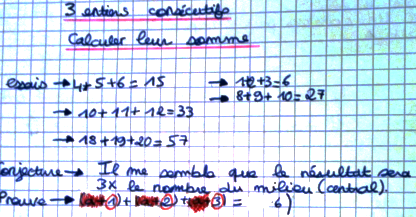 3 entiers consécutifs
Calculer leur somme
essais → 4+5+6 = 15 → 1+2+3=6
→ 8+9+10=27
→ 10+11+12=33
→ 18+19+20=57
onjecture → Il me semble que le résultat sera
3x le nombre du milieu (central).
Preuve → 1) + 2) + 3) = 6)